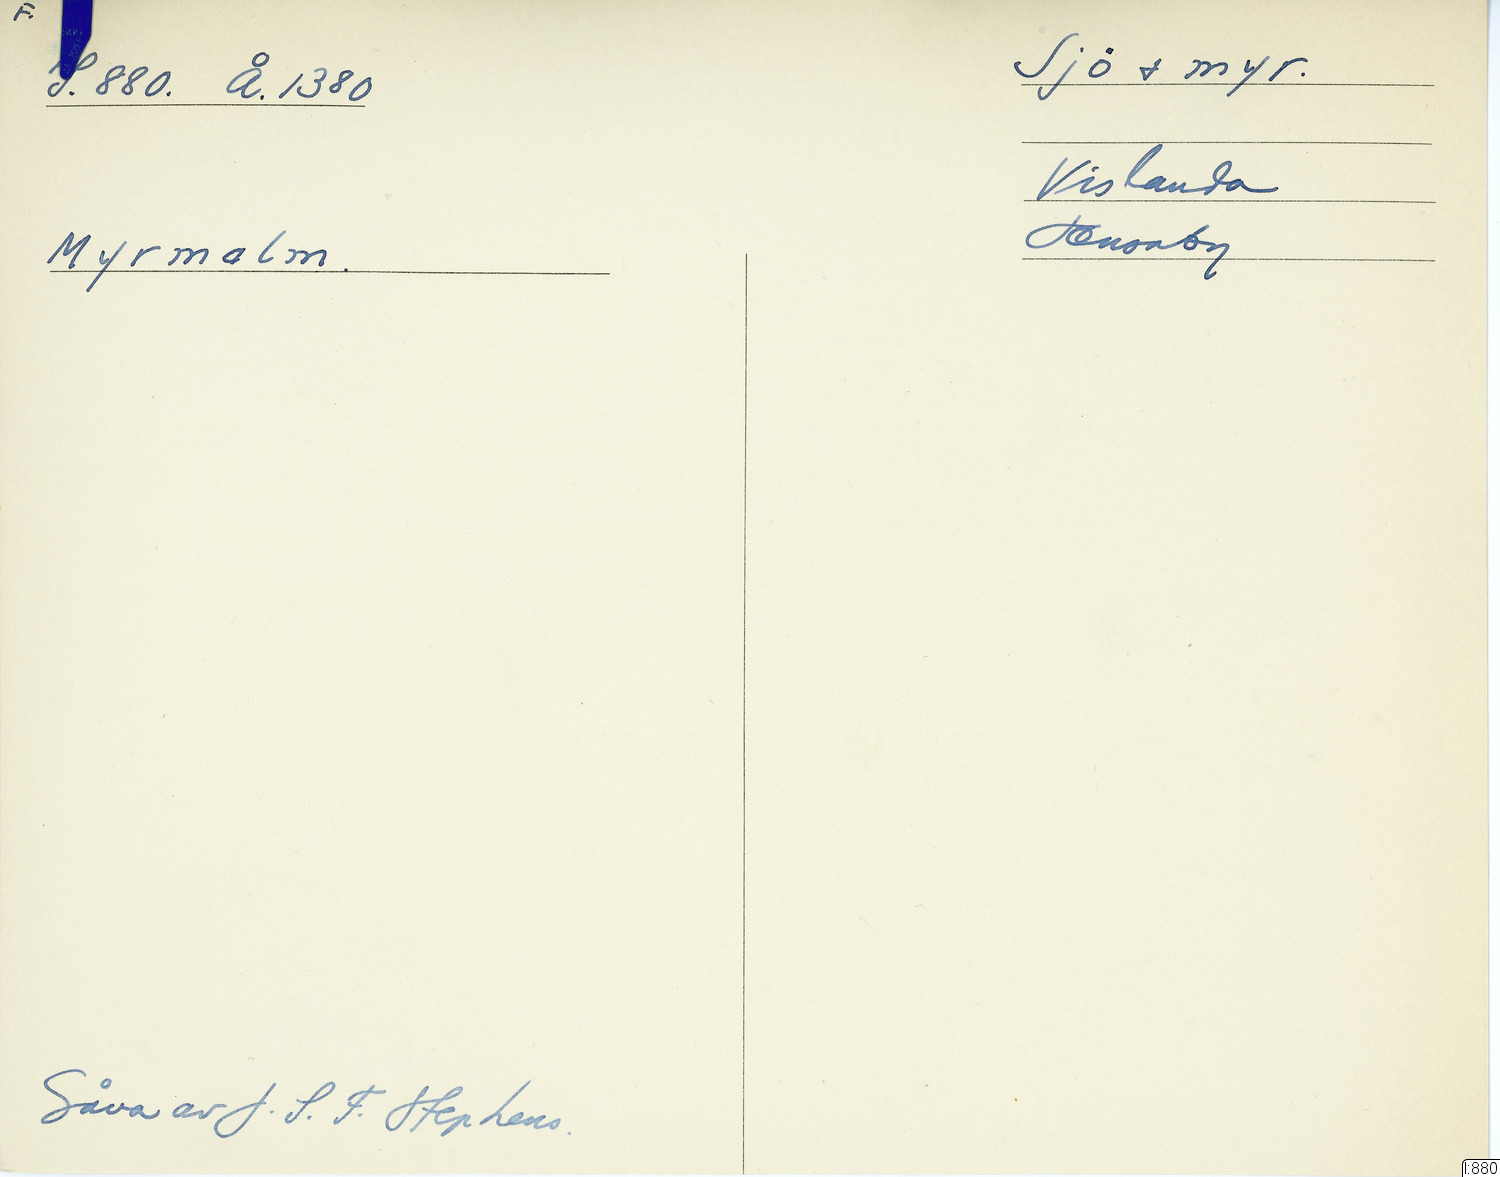 F.
S. 880. Å. 1380
Sjö & myr.
Vislanda
Myrmalm.
Gåva av J. S. F. Stephens.
I:880